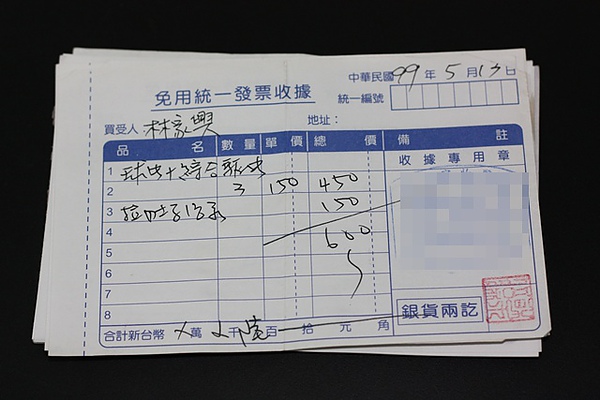 中華民國99年5月13日
免用統一發票收據
統一編號
買受人：林家興 地址：
品名 數量 單價 總價 備註
收據專用章
1 球虫十綜合
2 3 150 450
3 150
4 600
5
6
7
8
銀貨兩訖
合計新台幣 ×萬 千 陸 百 拾 元 角